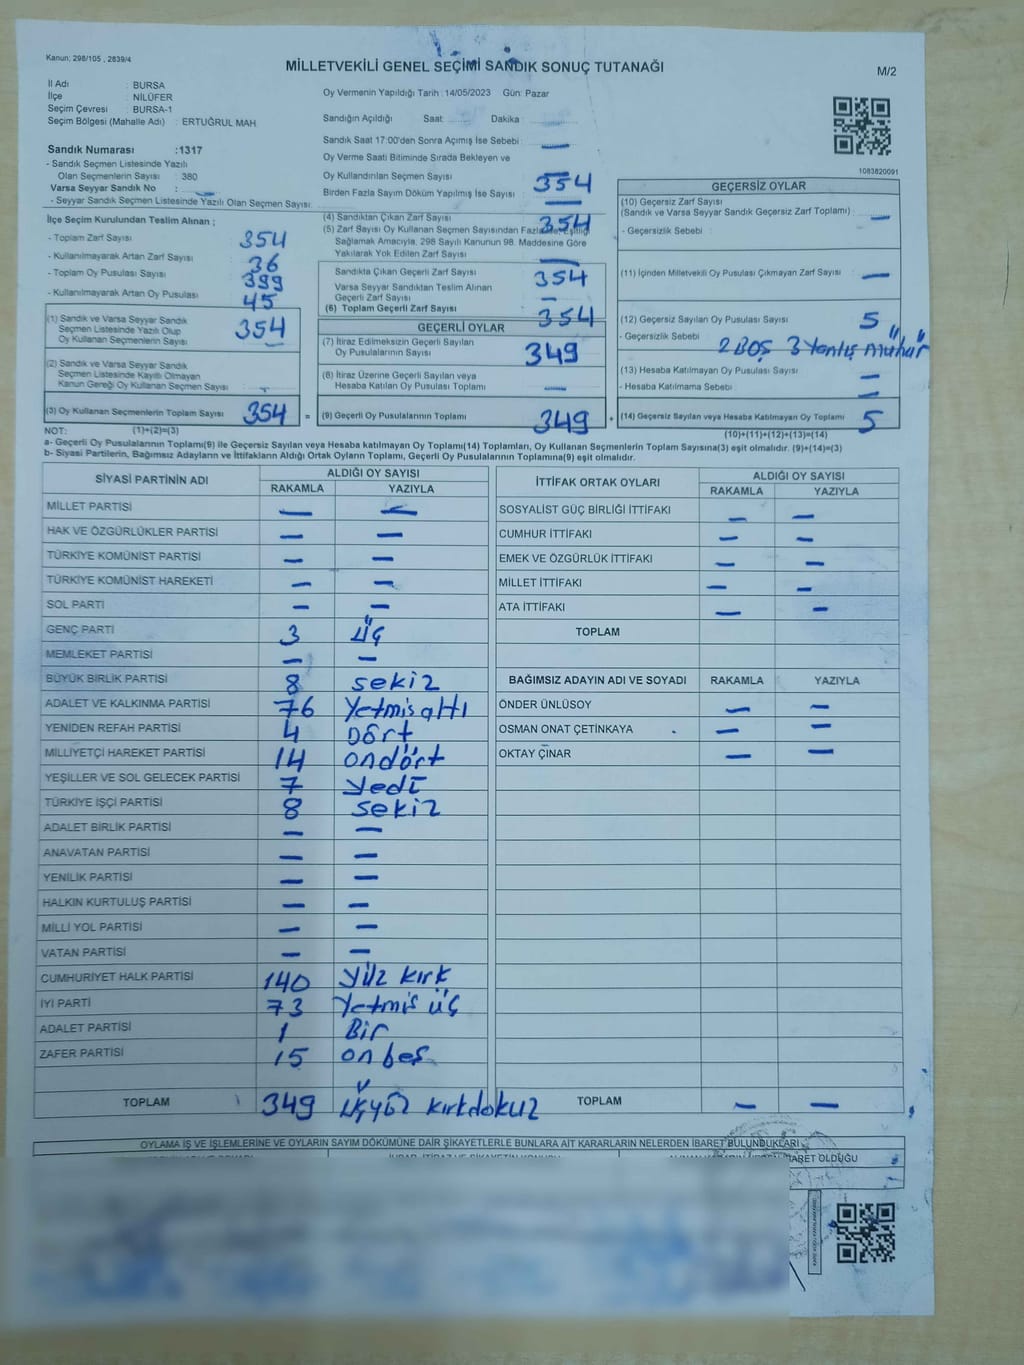 Kanun; 298/105 , 2839/4
MİLLETVEKİLİ GENEL SEÇİMİ SANDIK SONUÇ TUTANAĞI
M/2
İl Adı : BURSA
İlçe : NİLÜFER
Seçim Çevresi : BURSA-1
Seçim Bölgesi (Mahalle Adı) : ERTUĞRUL MAH.
Oy Vermenin Yapıldığı Tarih : 14/05/2023 Gün: Pazar
Sandığın Açıldığı Saat: Dakika :
Sandık Saat 17:00'dan Sonra Açımış İse Sebebi : —
Oy Verme Saati Bitiminde Sırada Bekleyen ve
Oy Kullandırılan Seçmen Sayısı : 354
Birden Fazla Sayım Döküm Yapılmış İse Sayısı : —
1083820091
Sandık Numarası :1317
- Sandık Seçmen Listesinde Yazılı
Olan Seçmenlerin Sayısı : 380
Varsa Seyyar Sandık No : —
- Seyyar Sandık Seçmen Listesinde Yazılı Olan Seçmen Sayısı:
İlçe Seçim Kurulundan Teslim Alınan ;
- Toplam Zarf Sayısı 354
- Kullanılmayarak Artan Zarf Sayısı 36
- Toplam Oy Pusulası Sayısı 399
- Kullanılmayarak Artan Oy Pusulası 45
(1) Sandık ve Varsa Seyyar Sandık
Seçmen Listesinde Yazılı Olup
Oy Kullanan Seçmenlerin Sayısı : 354
(2) Sandık ve Varsa Seyyar Sandık
Seçmen Listesinde Kayıtlı Olmayan
Kanun Gereği Oy Kullanan Seçmen Sayısı :
(3) Oy Kullanan Seçmenlerin Toplam Sayısı 354 =
(4) Sandıktan Çıkan Zarf Sayısı 354
(5) Zarf Sayısı Oy Kullanan Seçmen Sayısından Fazla ise, Eşitliği
Sağlamak Amacıyla, 298 Sayılı Kanunun 98. Maddesine Göre
Yakılarak Yok Edilen Zarf Sayısı —
Sandıkta Çıkan Geçerli Zarf Sayısı : 354
Varsa Seyyar Sandıktan Teslim Alınan
Geçerli Zarf Sayısı —
(6) Toplam Geçerli Zarf Sayısı : 354
GEÇERLİ OYLAR
(7) İtiraz Edilmeksizin Geçerli Sayılan
Oy Pusulalarının Sayısı : 349
(8) İtiraz Üzerine Geçerli Sayılan veya
Hesaba Katılan Oy Pusulası Toplamı : —
(9) Geçerli Oy Pusulalarının Toplamı 349 +
GEÇERSİZ OYLAR
(10) Geçersiz Zarf Sayısı
(Sandık ve Varsa Seyyar Sandık Geçersiz Zarf Toplamı) : —
- Geçersizlik Sebebi :
(11) İçinden Milletvekili Oy Pusulası Çıkmayan Zarf Sayısı : —
(12) Geçersiz Sayılan Oy Pusulası Sayısı : 5
- Geçersizlik Sebebi : 2 BOŞ 3 Yanlış mühür
(13) Hesaba Katılmayan Oy Pusulası Sayısı : —
- Hesaba Katılmama Sebebi : —
(14) Geçersiz Sayılan veya Hesaba Katılmayan Oy Toplamı : 5
NOT: (1)+(2)=(3)
(10)+(11)+(12)+(13)=(14)
a- Geçerli Oy Pusulalarının Toplamı(9) ile Geçersiz Sayılan veya Hesaba katılmayan Oy Toplamı(14) Toplamları, Oy Kullanan Seçmenlerin Toplam Sayısına(3) eşit olmalıdır. (9)+(14)=(3)
b- Siyasi Partilerin, Bağımsız Adayların ve İttifakların Aldığı Ortak Oyların Toplamı, Geçerli Oy Pusulalarının Toplamına(9) eşit olmalıdır.
SİYASİ PARTİNİN ADI ALDIĞI OY SAYISI
RAKAMLA YAZIYLA
MİLLET PARTİSİ — —
HAK VE ÖZGÜRLÜKLER PARTİSİ — —
TÜRKİYE KOMÜNİST PARTİSİ — —
TÜRKİYE KOMÜNİST HAREKETİ — —
SOL PARTİ — —
GENÇ PARTİ 3 üç
MEMLEKET PARTİSİ — —
BÜYÜK BİRLİK PARTİSİ 8 sekiz
ADALET VE KALKINMA PARTİSİ 76 Yetmiş altı
YENİDEN REFAH PARTİSİ 4 Dört
MİLLİYETÇİ HAREKET PARTİSİ 14 ondört
YEŞİLLER VE SOL GELECEK PARTİSİ 7 yedi
TÜRKİYE İŞÇİ PARTİSİ 8 sekiz
ADALET BİRLİK PARTİSİ — —
ANAVATAN PARTİSİ — —
YENİLİK PARTİSİ — —
HALKIN KURTULUŞ PARTİSİ — —
MİLLİ YOL PARTİSİ — —
VATAN PARTİSİ — —
CUMHURİYET HALK PARTİSİ 140 yüz kırk
İYİ PARTİ 73 Yetmiş üç
ADALET PARTİSİ 1 Bir
ZAFER PARTİSİ 15 on beş
TOPLAM 349 üçyüz kırkdokuz
İTTİFAK ORTAK OYLARI ALDIĞI OY SAYISI
RAKAMLA YAZIYLA
SOSYALİST GÜÇ BİRLİĞİ İTTİFAKI — —
CUMHUR İTTİFAKI — —
EMEK VE ÖZGÜRLÜK İTTİFAKI — —
MİLLET İTTİFAKI — —
ATA İTTİFAKI — —
TOPLAM
BAĞIMSIZ ADAYIN ADI VE SOYADI RAKAMLA YAZIYLA
ÖNDER ÜNLÜSOY — —
OSMAN ONAT ÇETİNKAYA — —
OKTAY ÇINAR — —
TOPLAM — —
OYLAMA İŞ VE İŞLEMLERİNE VE OYLARIN SAYIM DÖKÜMÜNE DAİR ŞİKAYETLERLE BUNLARA AİT KARARLARIN NELERDEN İBARET BULUNDUKLARI
İBARET OLDUĞU